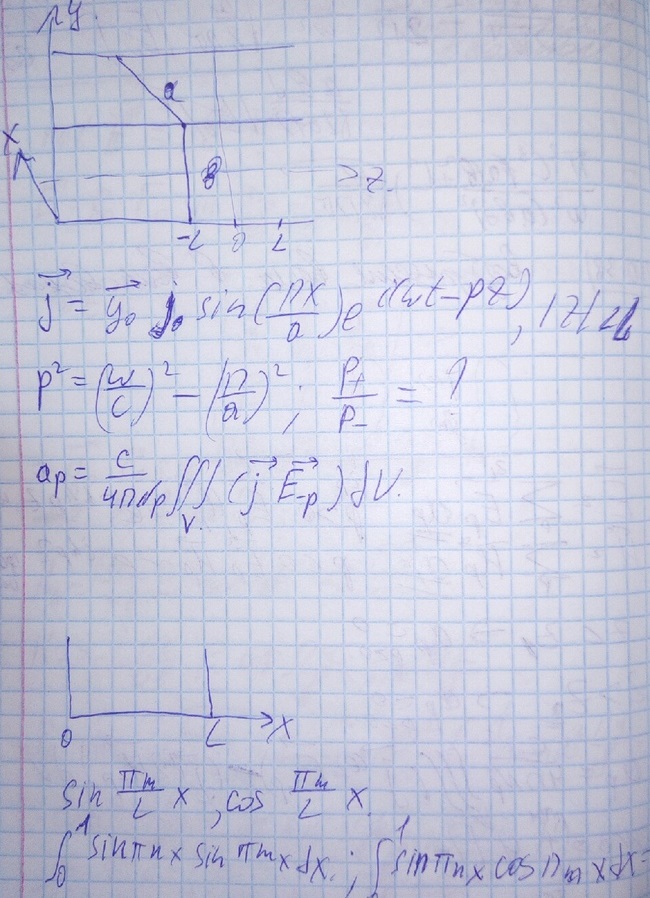 y
a
x
в
z
-L 0 L
j⃗ = y⃗₀ j₀ sin(πx/a) e^{i(ωt-pz)}, |z|<L
p² = (ω/c)² - (π/a)²; P₊/P₋ = ?
aₚ = c/(4πNₚ) ∭_V (j⃗ E⃗₋ₚ) dV.
0 L x
sin πm/L x, cos πm/L x.
∫₀¹ sin πn x sin πm x dx.; ∫₀¹ sin πn x cos πm x dx =